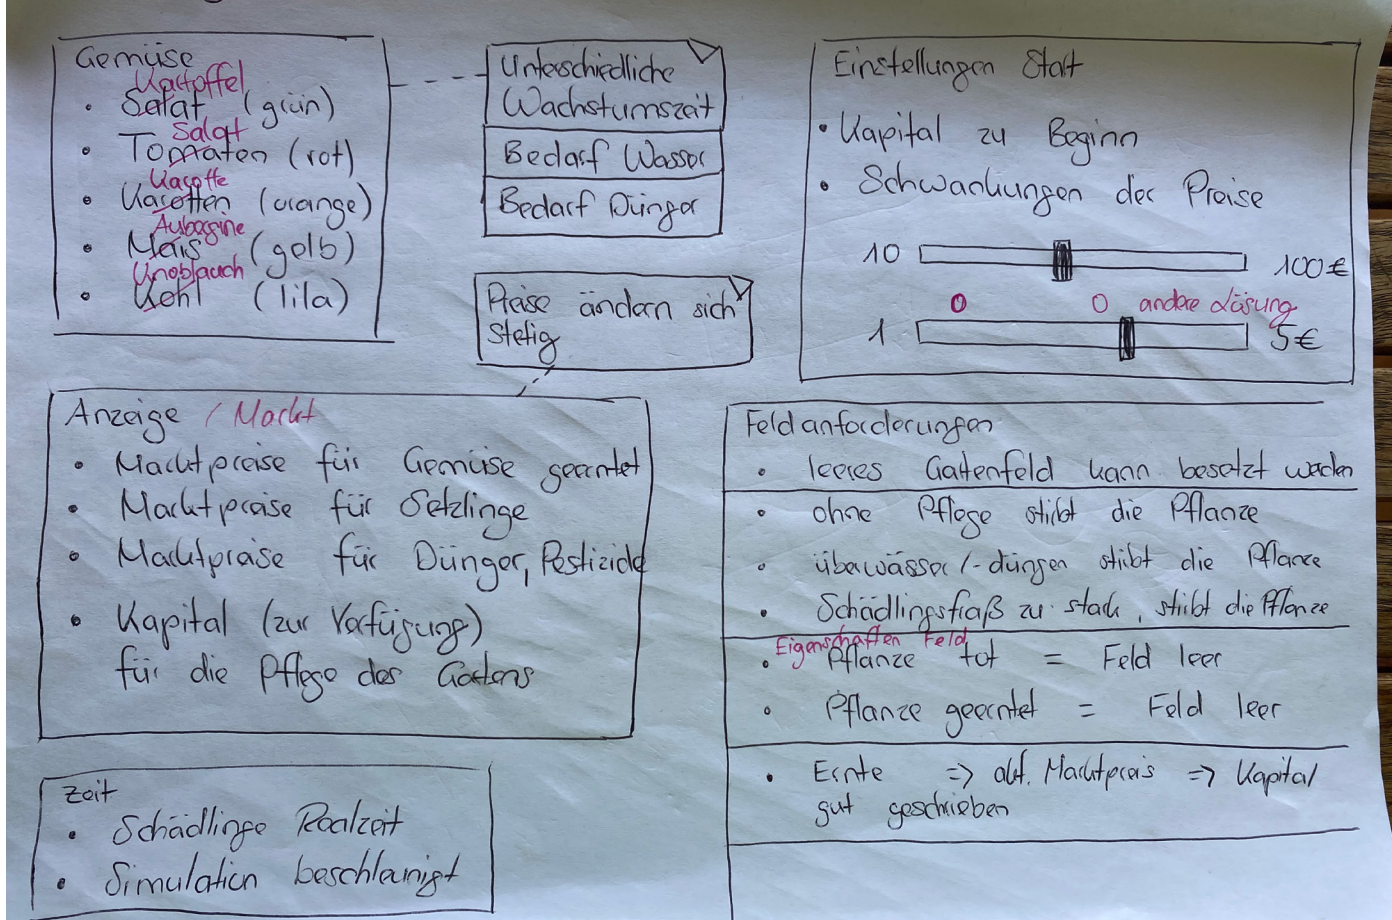 Gemüse
Kartoffel
• Salat (grün)
Salat
• Tomaten (rot)
Karotte
• Karotten (orange)
Aubergine
• Mais (gelb)
Knoblauch
• Kohl (lila)
Unterschiedliche
Wachstumszeit
Bedarf Wasser
Bedarf Dünger
Preise ändern sich
stetig
Einstellungen Start
• Kapital zu Beginn
• Schwankungen der Preise
10 100€
o o andere Lösung
1 5€
Anzeige / Markt
• Marktpreise für Gemüse geerntet
• Marktpreise für Setzlinge
• Marktpreise für Dünger, Pestizide
• Kapital (zur Verfügung)
für die Pflege des Gartens
Feldanforderungen
• leeres Gartenfeld kann besetzt werden
• ohne Pflege stirbt die Pflanze
• überwässer/-düngen stirbt die Pflanze
• Schädlingsfraß zu stark, stirbt die Pflanze
Eigenschaften Feld
• Pflanze tot = Feld leer
• Pflanze geerntet = Feld leer
• Ernte => akt. Marktpreis => Kapital
gut geschrieben
Zeit
• Schädlinge Realzeit
• Simulation beschleunigt